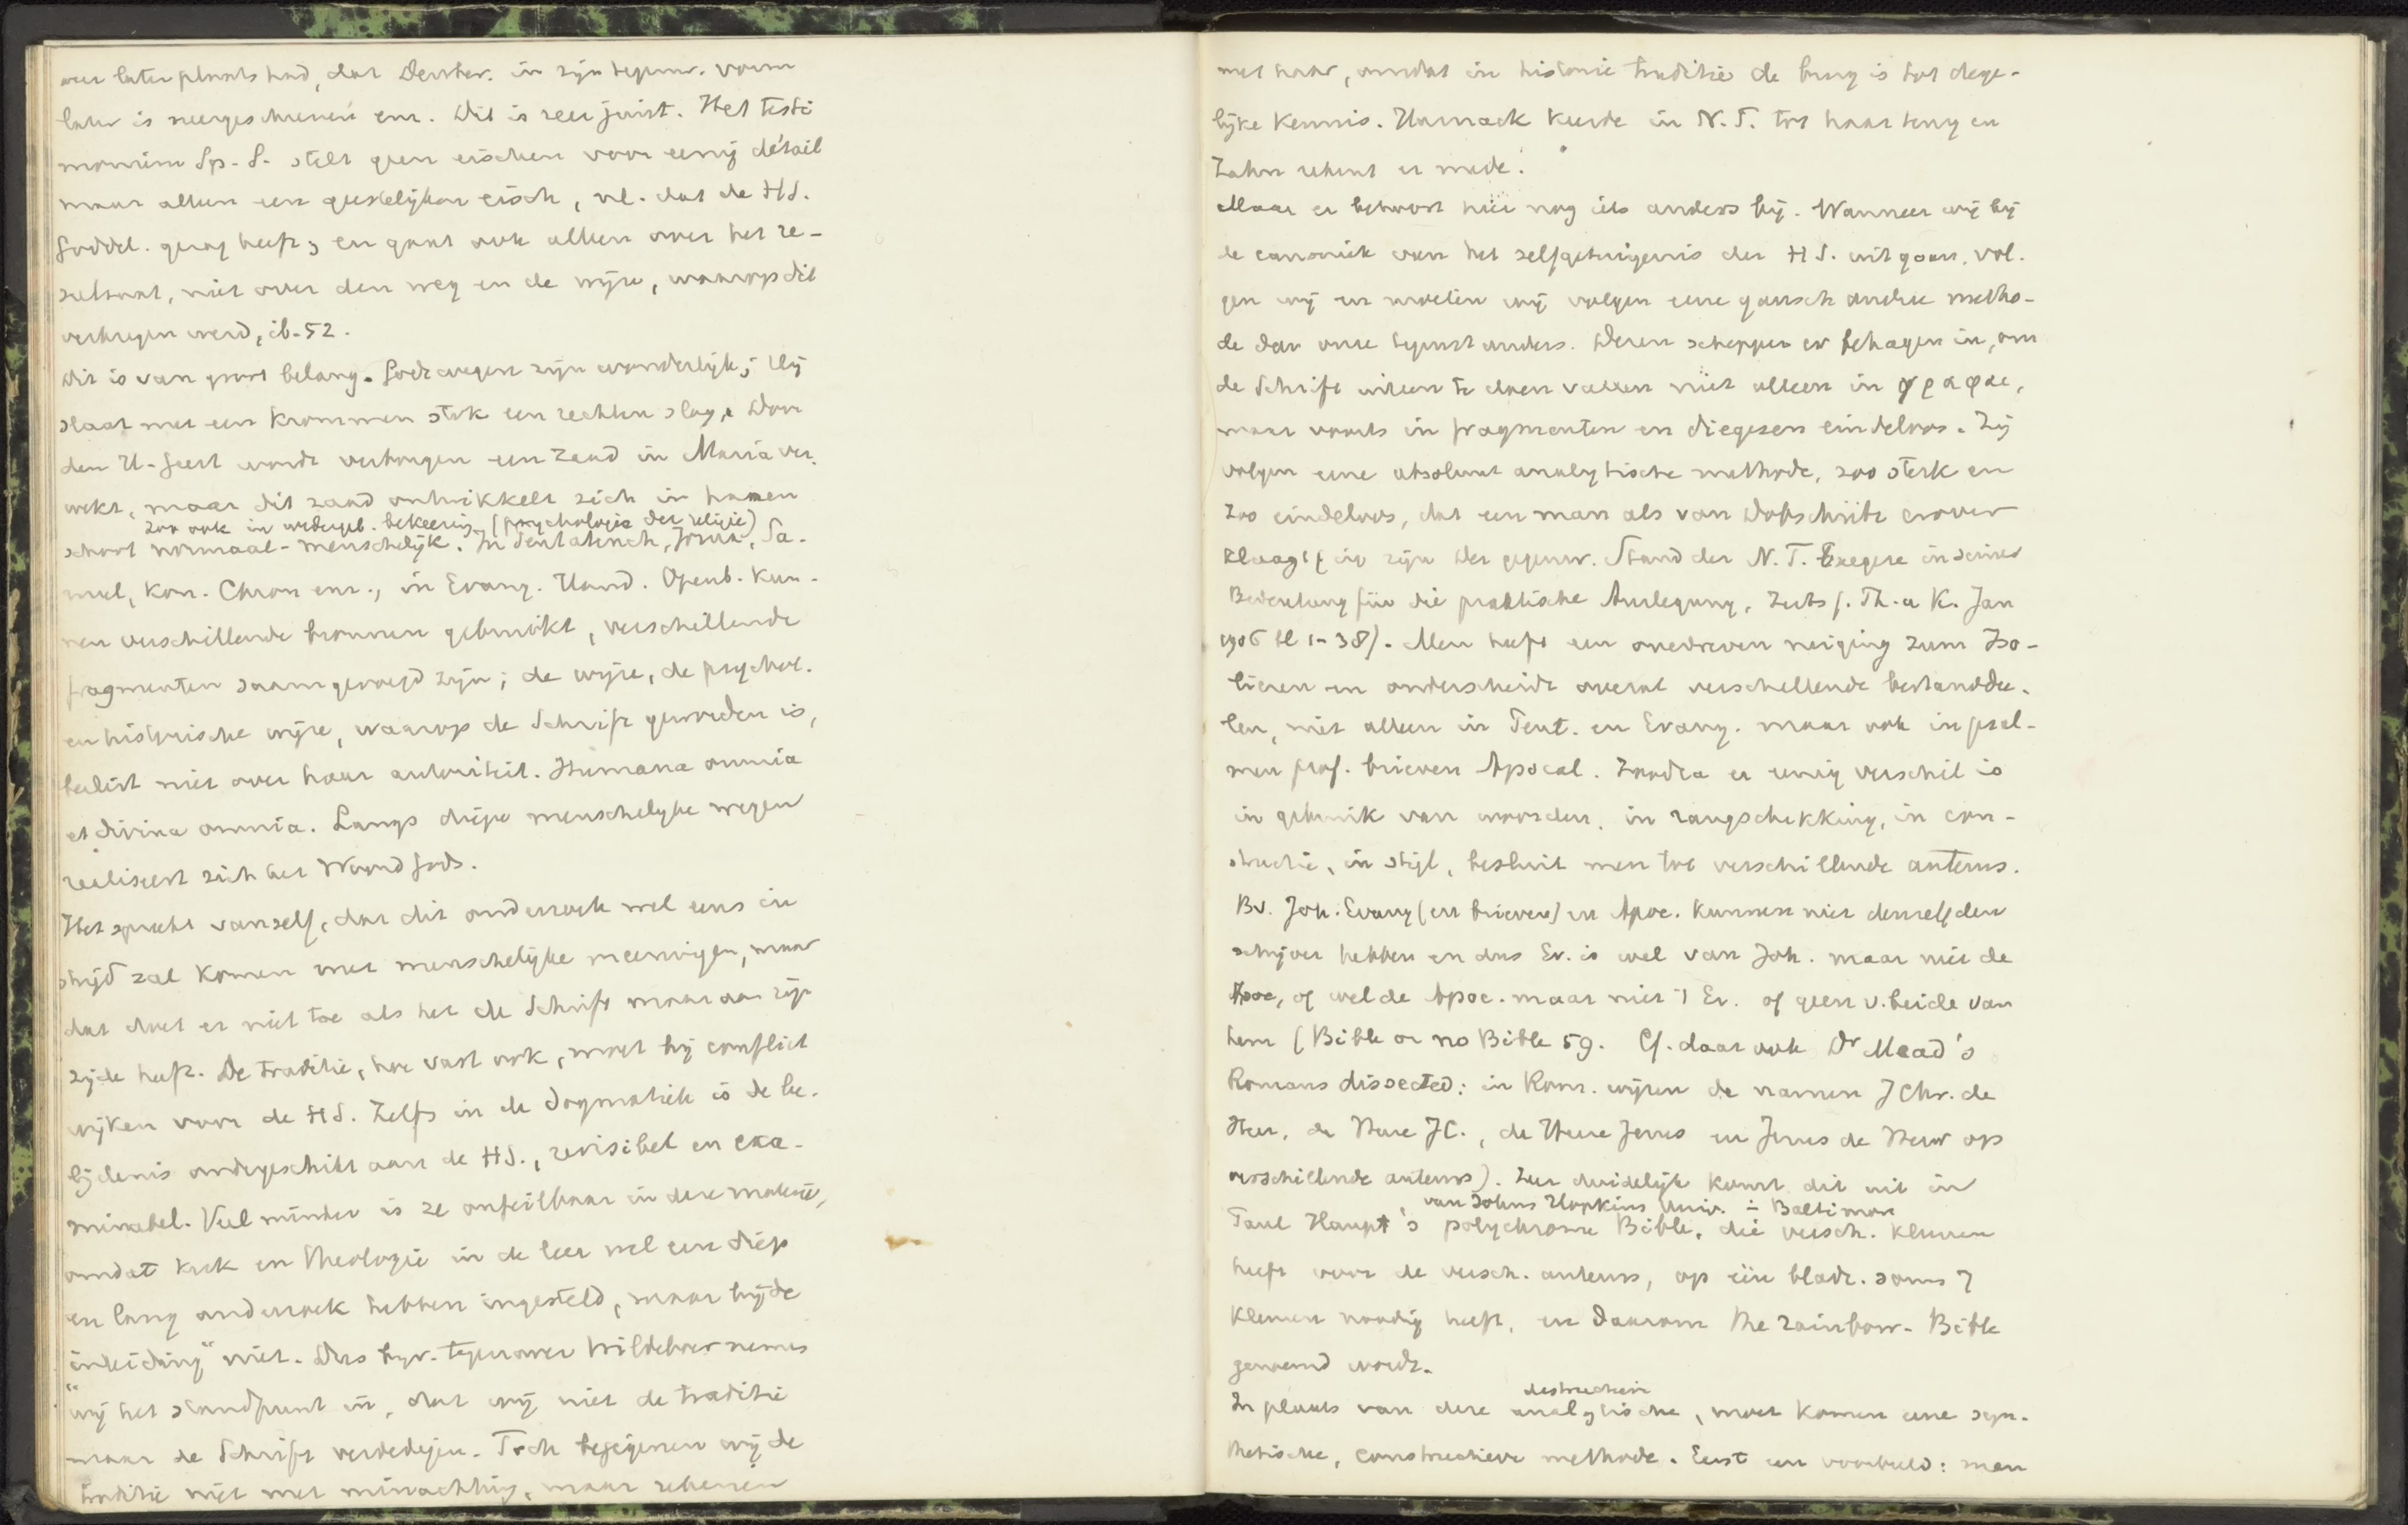 eeuw later plaats had, dat Deuter. in zijn tegenw. vorm
later is neergeschreven enz. Dit is zeer juist. Het testi
monium Sp. S. stelt geen eischen voor eenig détail
maar alleen een geestelijken eisch, nl. dat de H S.
Goddel. gezag heeft, en gaat ook alleen over het re-
sultaat, niet over den weg en de wijze, waarop dit
verkregen werd, ib. 52.
Dit is van groot belang. Gods wegen zijn wonderlijk; Hij
slaat met een krommen stok een rechten slag. Door
den H. Geest wordt verborgen een zaad in Maria ver-
wekt, maar dit zaad ontwikkelt zich in haren
zoo ook in wedergeb. bekeering (psychologie der religie)
schoot normaal-menschelijk. In Pentateuch, Jozua, Sa-
muel, Kon. Chron enz., in Evang. Hand. Openb. kun-
nen verschillende bronnen gebruikt, verschillende
fragmenten saamgevoegd zijn; de wijze, de psychol.
en historische wijze, waarop de Schrift geworden is,
beslist niet over haar autoriteit. Humana omnia
et divina omnia. Langs diepe menschelijke wegen
realiseert zich het Woord Gods.
Het spreekt vanzelf, dat dit onderzoek wel eens in
strijd zal komen met menschelijke meeningen, maar
dat doet er niet toe als het de Schrift maar aan zijn
zijde heeft. De traditie, hoe vast ook, moet bij conflict
wijken voor de H S. Zelfs in de dogmatiek is de be-
lijdenis ondergeschikt aan de H S., revisibel en exa-
minabel. Veel minder is ze onfeilbaar in deze materie,
omdat kerk en theologie in de leer wel een diep
en lang onderzoek hebben ingesteld, maar bij de
"inleiding" niet. Dus bijv. tegenover Wildeboer nemen
"wij het standpunt in, dat wij niet de traditie
maar de Schrift verdedigen. Toch bejegenen wij de
traditie niet met minachting, maar rekenen
met haar, omdat in historie traditie de brug is tot dege-
lijke kennis. Harnack keerde in N. T. tot haar terug en
Zahn rekent er mede.
Maar er behoort hier nog iets anders bij. Wanneer wij bij
de canoniek van het zelfgetuigenis der H S. uitgaan, vol-
gen wij en moeten wij volgen eene gansch andere metho-
de dan onze tegenstanders. Dezen scheppen er behagen in, om
de Schrift uiteen te doen vallen niet alleen in γραφαι,
maar voorts in fragmenten en diegesen eindeloos. Zij
volgen eene absoluut analytische methode, zoo sterk en
zoo eindeloos, dat een man als von Dobschütz erover
klaagt (in zijn Der gegenw. Stand der N. T. Exegese in seiner
Bedeutung für die praktische Auslegung, Zeits f. Th. u K. Jan
1906 bl 1-38). Men heeft een overdreven neiging zum Iso-
lieren en onderscheidt overal verschillende bestanddee-
len, niet alleen in Pent. en Evang. maar ook in psal-
men prof. brieven Apocal. Zoodra er eenig verschil is
in gebruik van woorden, in rangschikking, in con-
structie, in stijl, besluit men tot verschillende auteurs.
Bv. Joh. Evang (en brieven) en Apoc. kunnen niet denzelfden
schrijver hebben en dus Ev. is wel van Joh. maar niet de
Apoc, of wel de Apoc. maar niet 't Ev. of geen v. beide van
hem (Bible or no Bible 59. Cf. daar ook Dr Mead's
Romans dissected: in Rom. wijzen de namen J Chr. de
Heer, de Heere JC., de Heere Jezus en Jezus de Heer op
verschillende auteurs). Zeer duidelijk komt dit uit in
van Johns Hopkins Univ. = Baltimore
Paul Haupt's polychrome Bible, die versch. kleuren
heeft voor de versch. auteurs, op één bladz. soms 7
kleuren noodig heeft, en daarom the rainbow-Bible
genoemd wordt.
destructieve
In plaats van deze analytische, moet komen eene syn-
thetische, constructieve methode. Eerst een voorbeeld: men